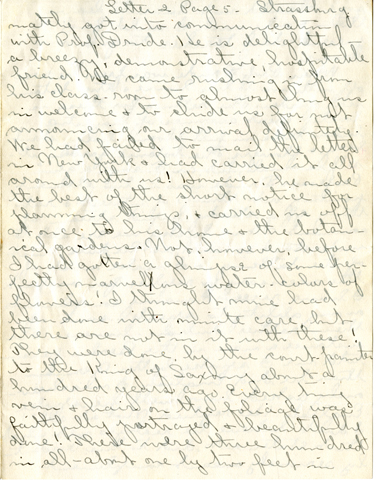 Letter 2 Page 5 - Strassburg
mately got into communication
with Prof. Drude. He is delightful
a breezy, demonstrative, hospitable
friend. He came rushing in from
his class room to almost hug us
in welcome & to chide us for not
announcing our arrival definitely.
We had failed to mail the letter
in New York & had carried it all
around with us! However, he made
the best of the short notice for
planning things, & carried us off
at once to his home & the botan-
ical gardens. Not, however, before
I had gotten a glimpse of some per-
fectly marvellous water-colors of
flowers. I thought mine had
been done with minute care, but
they are not in it with these!
They were done by the court painter
to the King of Saxony about a
hundred years ago. Every tiny
vein & hair on the foliage was
faithfully portrayed & beautifully
done! There were three hundred
in all - about one by two feet in